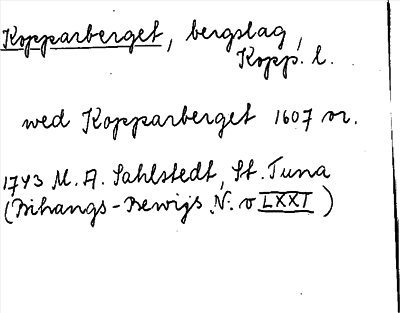 Kopparberget, bergslag,
Kopp. l.
wed Kopparberget 1607 or.
1743 M. A. Sahlstedt, St. Tuna
(Bihangs-Bewijs N. o LXXI)